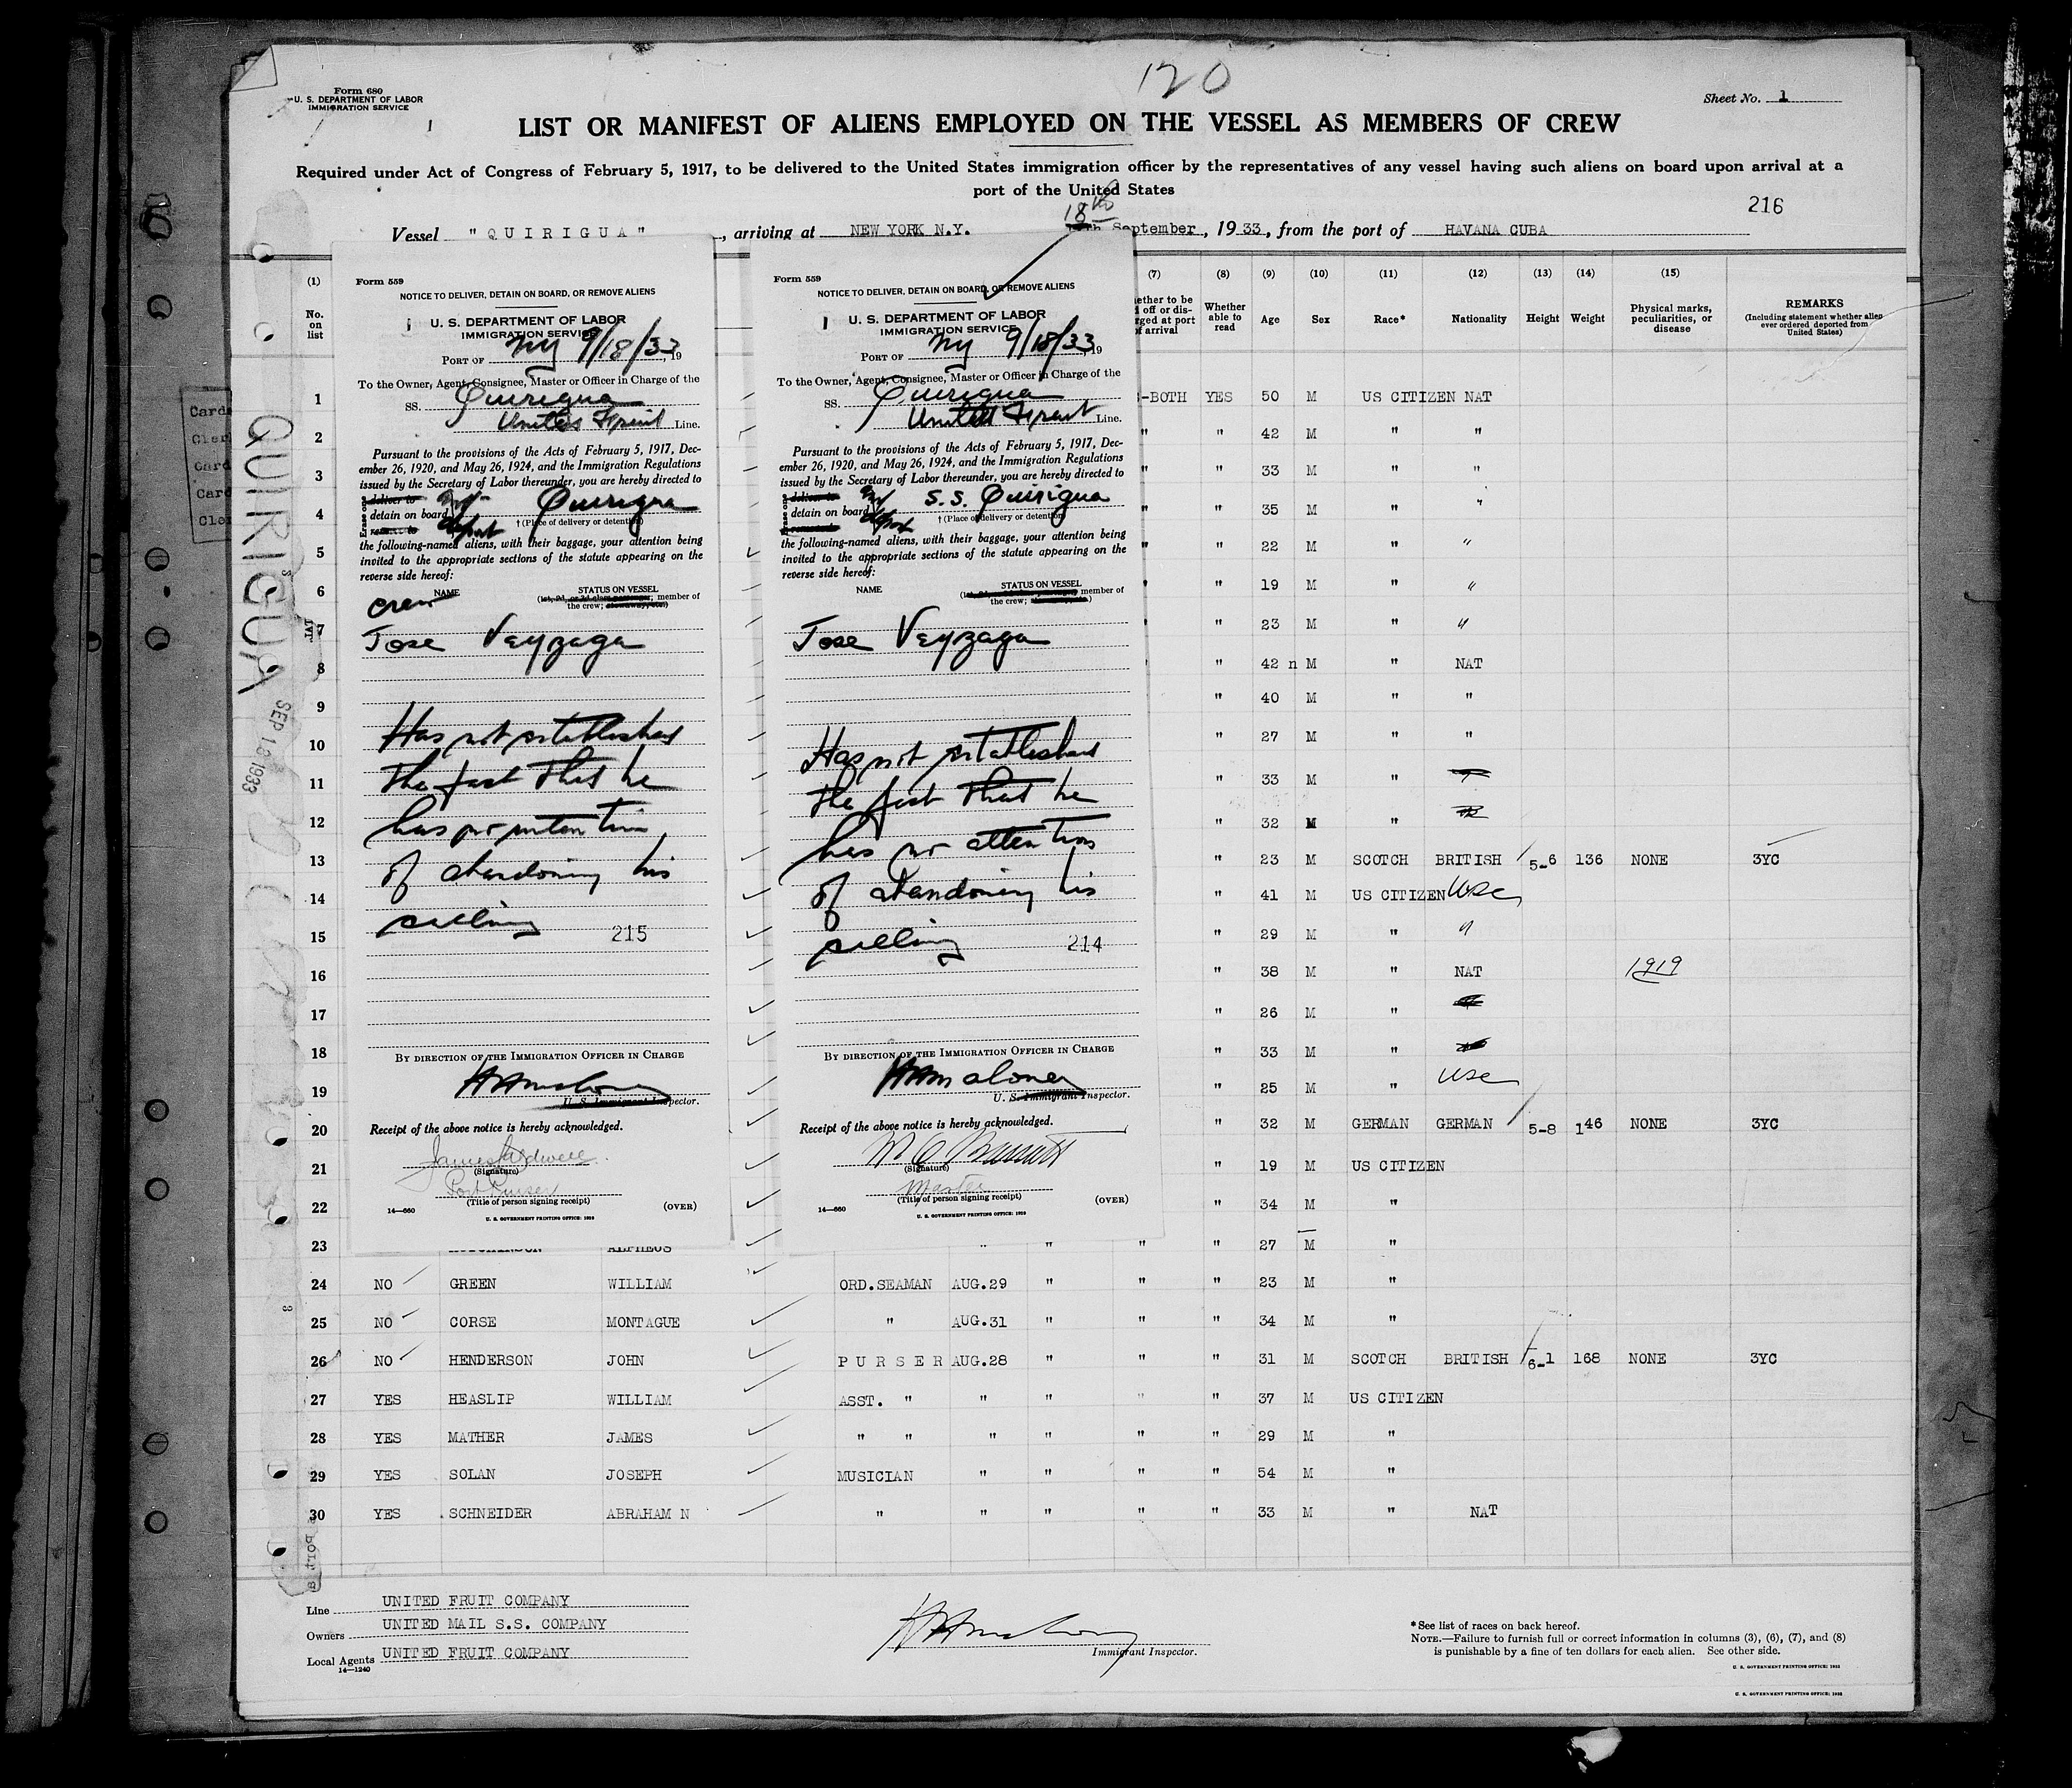 120
Form 680
U. S. DEPARTMENT OF LABOR
IMMIGRATION SERVICE
Sheet No. 1
LIST OR MANIFEST OF ALIENS EMPLOYED ON THE VESSEL AS MEMBERS OF CREW
Required under Act of Congress of February 5, 1917, to be delivered to the United States immigration officer by the representatives of any vessel having such aliens on board upon arrival at a
port of the United States
216
18th
Vessel "QUIRIGUA", arriving at NEW YORK N.Y. September, 1933, from the port of HAVANA CUBA
(1)
No. on list
Form 559
NOTICE TO DELIVER, DETAIN ON BOARD, OR REMOVE ALIENS
U. S. DEPARTMENT OF LABOR
IMMIGRATION SERVICE
PORT OF NY 9/18/33, 19
To the Owner, Agent, Consignee, Master or Officer in Charge of the
SS. Quirigua
United Fruit Line.
Pursuant to the provisions of the Acts of February 5, 1917, Dec-
ember 26, 1920, and May 26, 1924, and the Immigration Regulations
issued by the Secretary of Labor thereunder, you are hereby directed to
deliver to
detain on board and deport Quirigua
† (Place of delivery or detention)
the following-named aliens, with their baggage, your attention being
invited to the appropriate sections of the statute appearing on the
reverse side hereof:
NAME STATUS ON VESSEL
crew member of
the crew;
Jose Veyzaga
Has not established
the fact that he
has no intention
of abandoning his
calling
215
BY DIRECTION OF THE IMMIGRATION OFFICER IN CHARGE
U. S. Immigrant Inspector.
Receipt of the above notice is hereby acknowledged.
(Signature)
Port Purser
(Title of person signing receipt)
14—660 (OVER)
U. S. GOVERNMENT PRINTING OFFICE: 1930
Form 559
NOTICE TO DELIVER, DETAIN ON BOARD, OR REMOVE ALIENS
U. S. DEPARTMENT OF LABOR
IMMIGRATION SERVICE
PORT OF NY 9/18/33, 19
To the Owner, Agent, Consignee, Master or Officer in Charge of the
SS. Quirigua
United Fruit Line.
Pursuant to the provisions of the Acts of February 5, 1917, Dec-
ember 26, 1920, and May 26, 1924, and the Immigration Regulations
issued by the Secretary of Labor thereunder, you are hereby directed to
deliver to
detain on board and deport S.S. Quirigua
† (Place of delivery or detention)
the following-named aliens, with their baggage, your attention being
invited to the appropriate sections of the statute appearing on the
reverse side hereof:
NAME STATUS ON VESSEL
member of
the crew;
Jose Veyzaga
Has not established
the fact that he
has no attention
of abandoning his
calling
214
BY DIRECTION OF THE IMMIGRATION OFFICER IN CHARGE
HAMaloney
U. S. Immigrant Inspector.
Receipt of the above notice is hereby acknowledged.
(Signature)
Master
(Title of person signing receipt)
14—660 (OVER)
U. S. GOVERNMENT PRINTING OFFICE: 1930
(7) (8) (9) (10) (11) (12) (13) (14) (15)
Whether able to read Age Sex Race* Nationality Height Weight Physical marks, peculiarities, or disease REMARKS
(Including statement whether alien ever ordered deported from United States)
1 -BOTH YES 50 M US CITIZEN NAT
2 " " 42 M " "
3 " " 33 M " "
4 " " 35 M " "
5 " " 22 M " "
6 " " 19 M " "
7 " " 23 M " "
8 " 42 n M " NAT
9 " 40 M " "
10 " 27 M " "
11 " 33 M "
12 " 32 M "
13 " 23 M SCOTCH BRITISH 5-6 136 NONE 3YC
14 " 41 M US CITIZEN USC
15 " 29 M " "
16 " 38 M " NAT 1919
17 " 26 M "
18 " 33 M "
19 " 25 M " USC
20 " 32 M GERMAN GERMAN 5-8 146 NONE 3YC
21 " 19 M US CITIZEN
22 " 34 M "
23 HUTCHINSON ALPHEUS " " " " 27 M "
24 NO GREEN WILLIAM ORD.SEAMAN AUG.29 " " " 23 M "
25 NO CORSE MONTAGUE " AUG.31 " " " 34 M "
26 NO HENDERSON JOHN PURSER AUG.28 " " " 31 M SCOTCH BRITISH 6-1 168 NONE 3YC
27 YES HEASLIP WILLIAM ASST. " " " " " 37 M US CITIZEN
28 YES MATHER JAMES " " " " " " 29 M "
29 YES SOLAN JOSEPH MUSICIAN " " " " 54 M "
30 YES SCHNEIDER ABRAHAM N " " " " " 33 M " NAT
QUIRIGUA
SEP 18 1933
Line UNITED FRUIT COMPANY
Owners UNITED MAIL S.S. COMPANY
Local Agents UNITED FRUIT COMPANY
14—1240
Immigrant Inspector.
*See list of races on back hereof.
NOTE.—Failure to furnish full or correct information in columns (3), (6), (7), and (8)
is punishable by a fine of ten dollars for each alien. See other side.
U. S. GOVERNMENT PRINTING OFFICE: 1932
U. S. GOVERNMENT PRINTING OFFICE: 1932